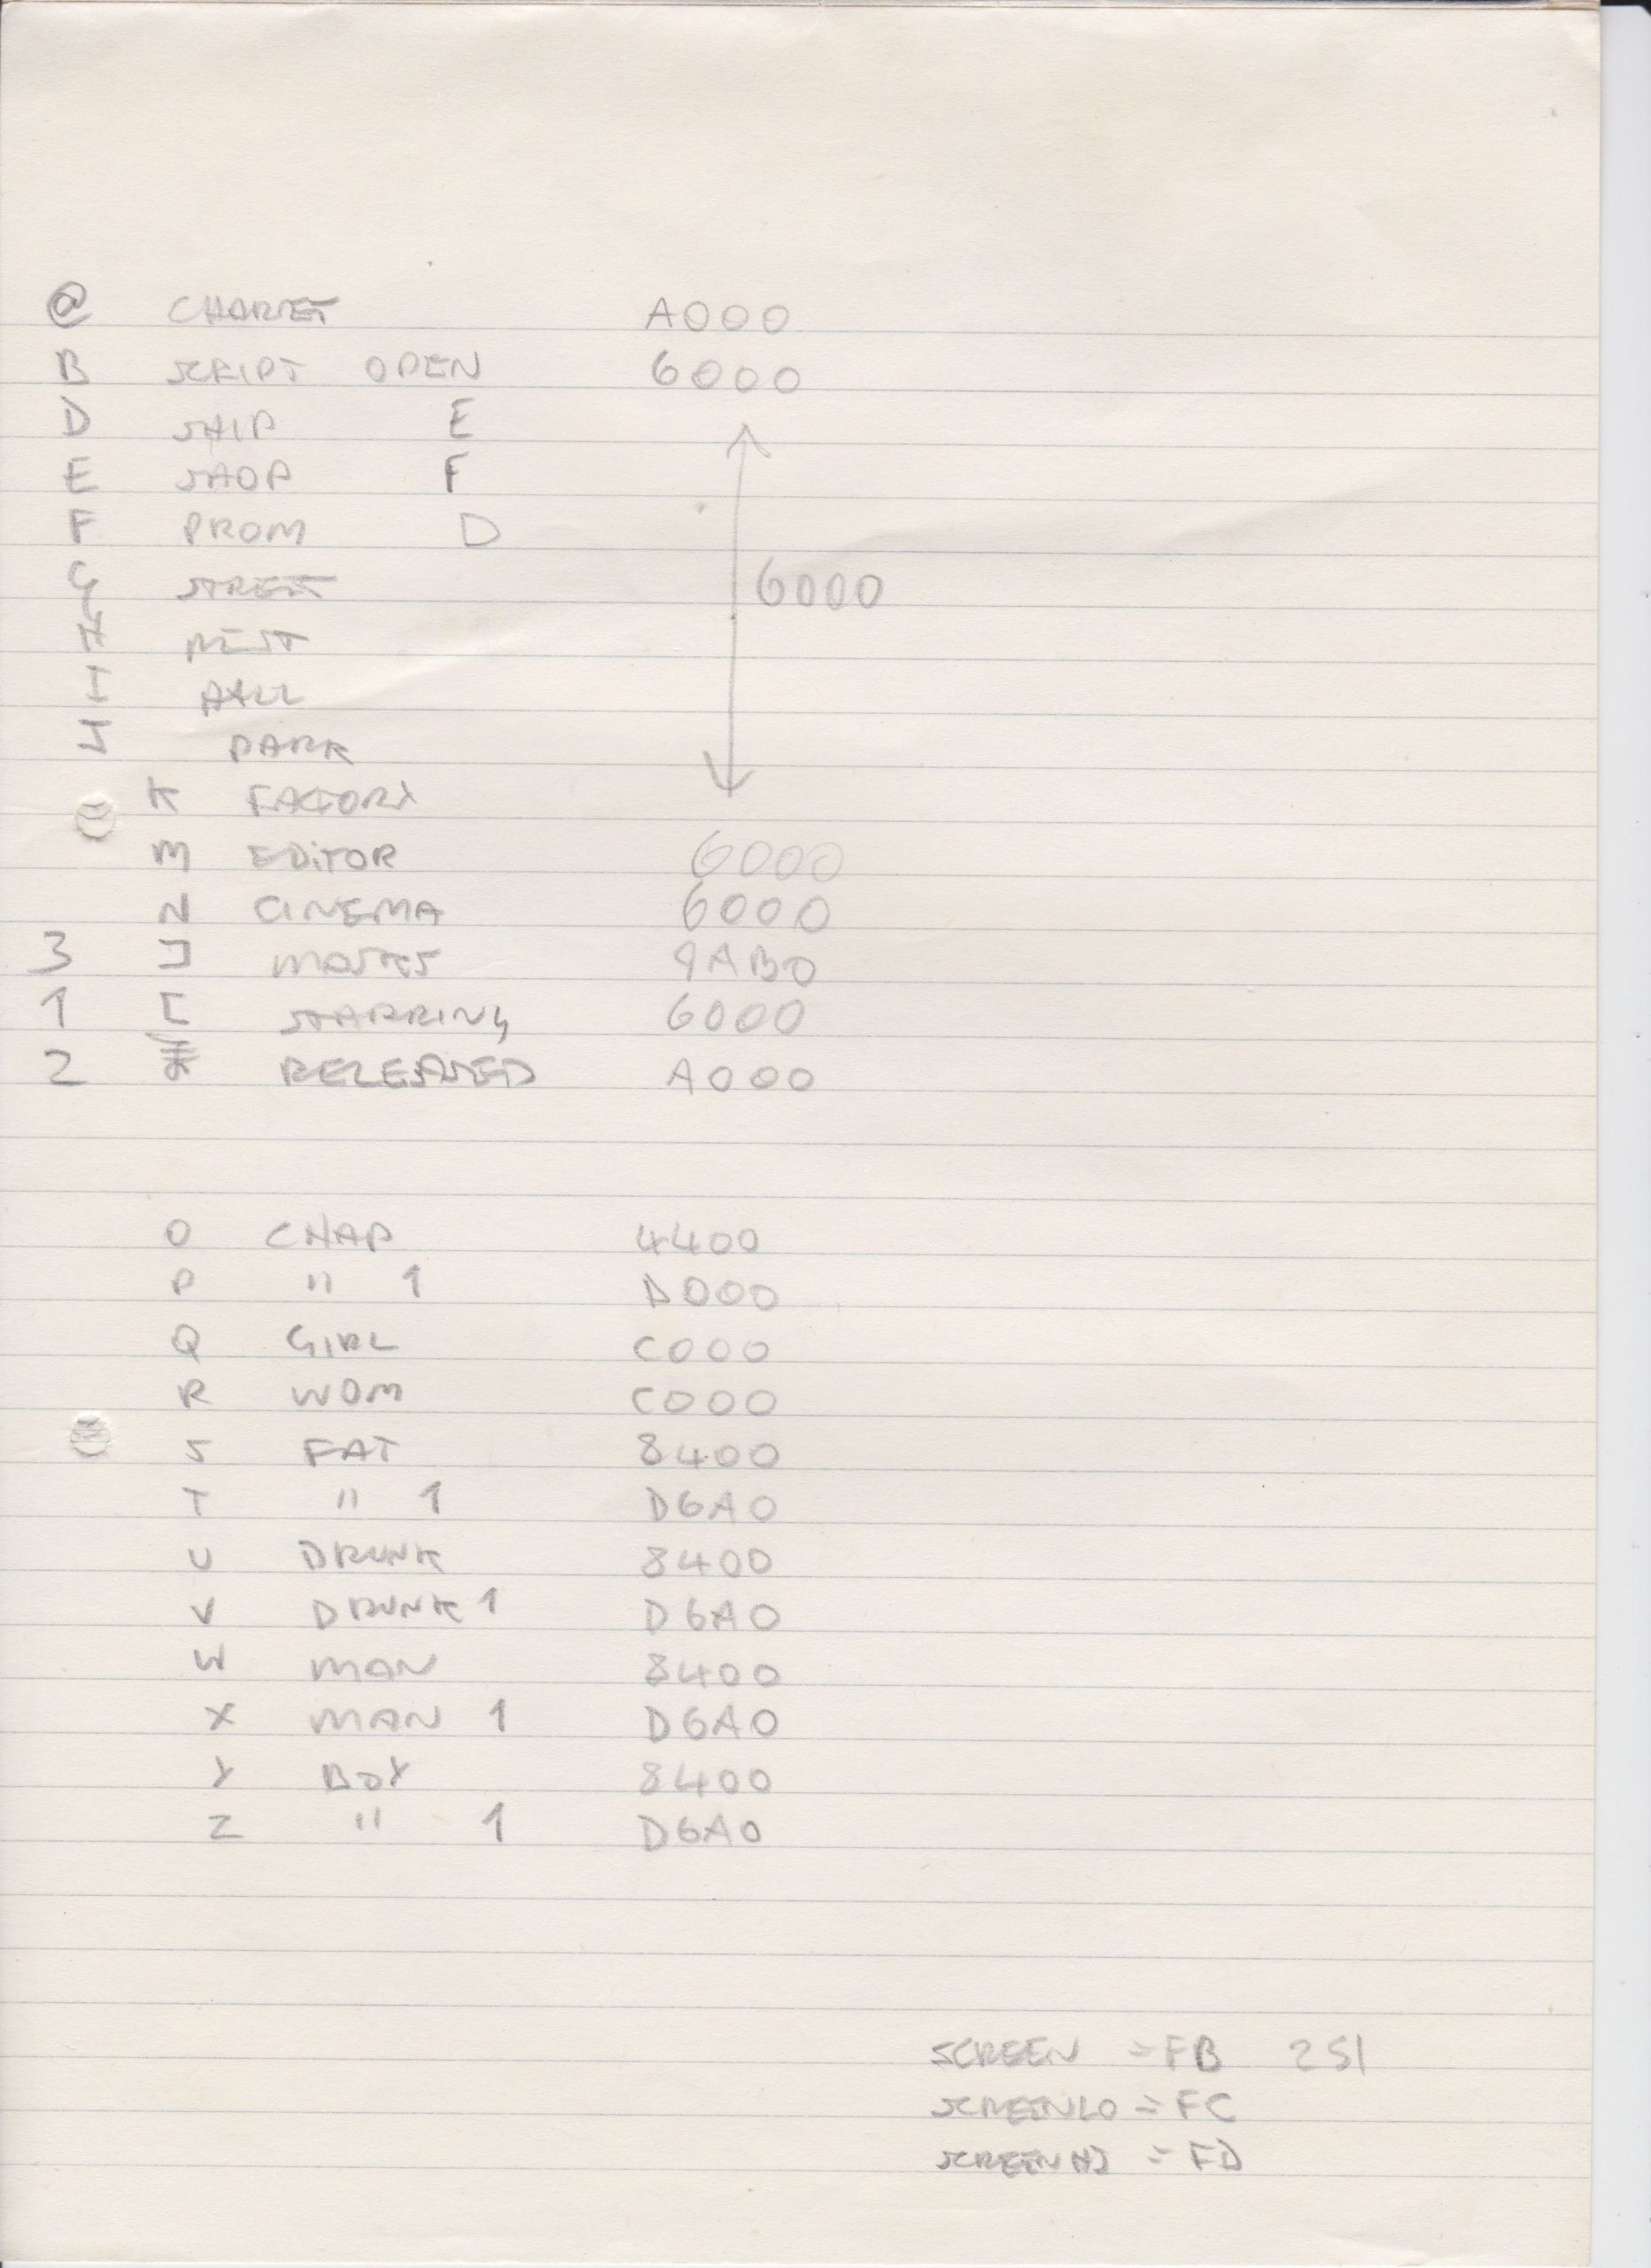 @ CHARSET A000
B SCRIPT OPEN 6000
D SHIP E
E SHOP F
F PROM D
G STREET 6000
H REST
I HALL
J PARK
K FACTORY
M EDITOR 6000
N CINEMA 6000
3 ] MASKS 9AB0
1 [ STARRING 6000
2 RELEASED A000
O CHAP 4400
P " 1 D000
Q GIRL C000
R WOM C000
S FAT 8400
T " 1 D6A0
U DRUNK 8400
V DRUNK 1 D6A0
W MAN 8400
X MAN 1 D6A0
Y BOY 8400
Z " 1 D6A0
SCREEN = FB 251
SCREENLO = FC
SCREENHI = FD